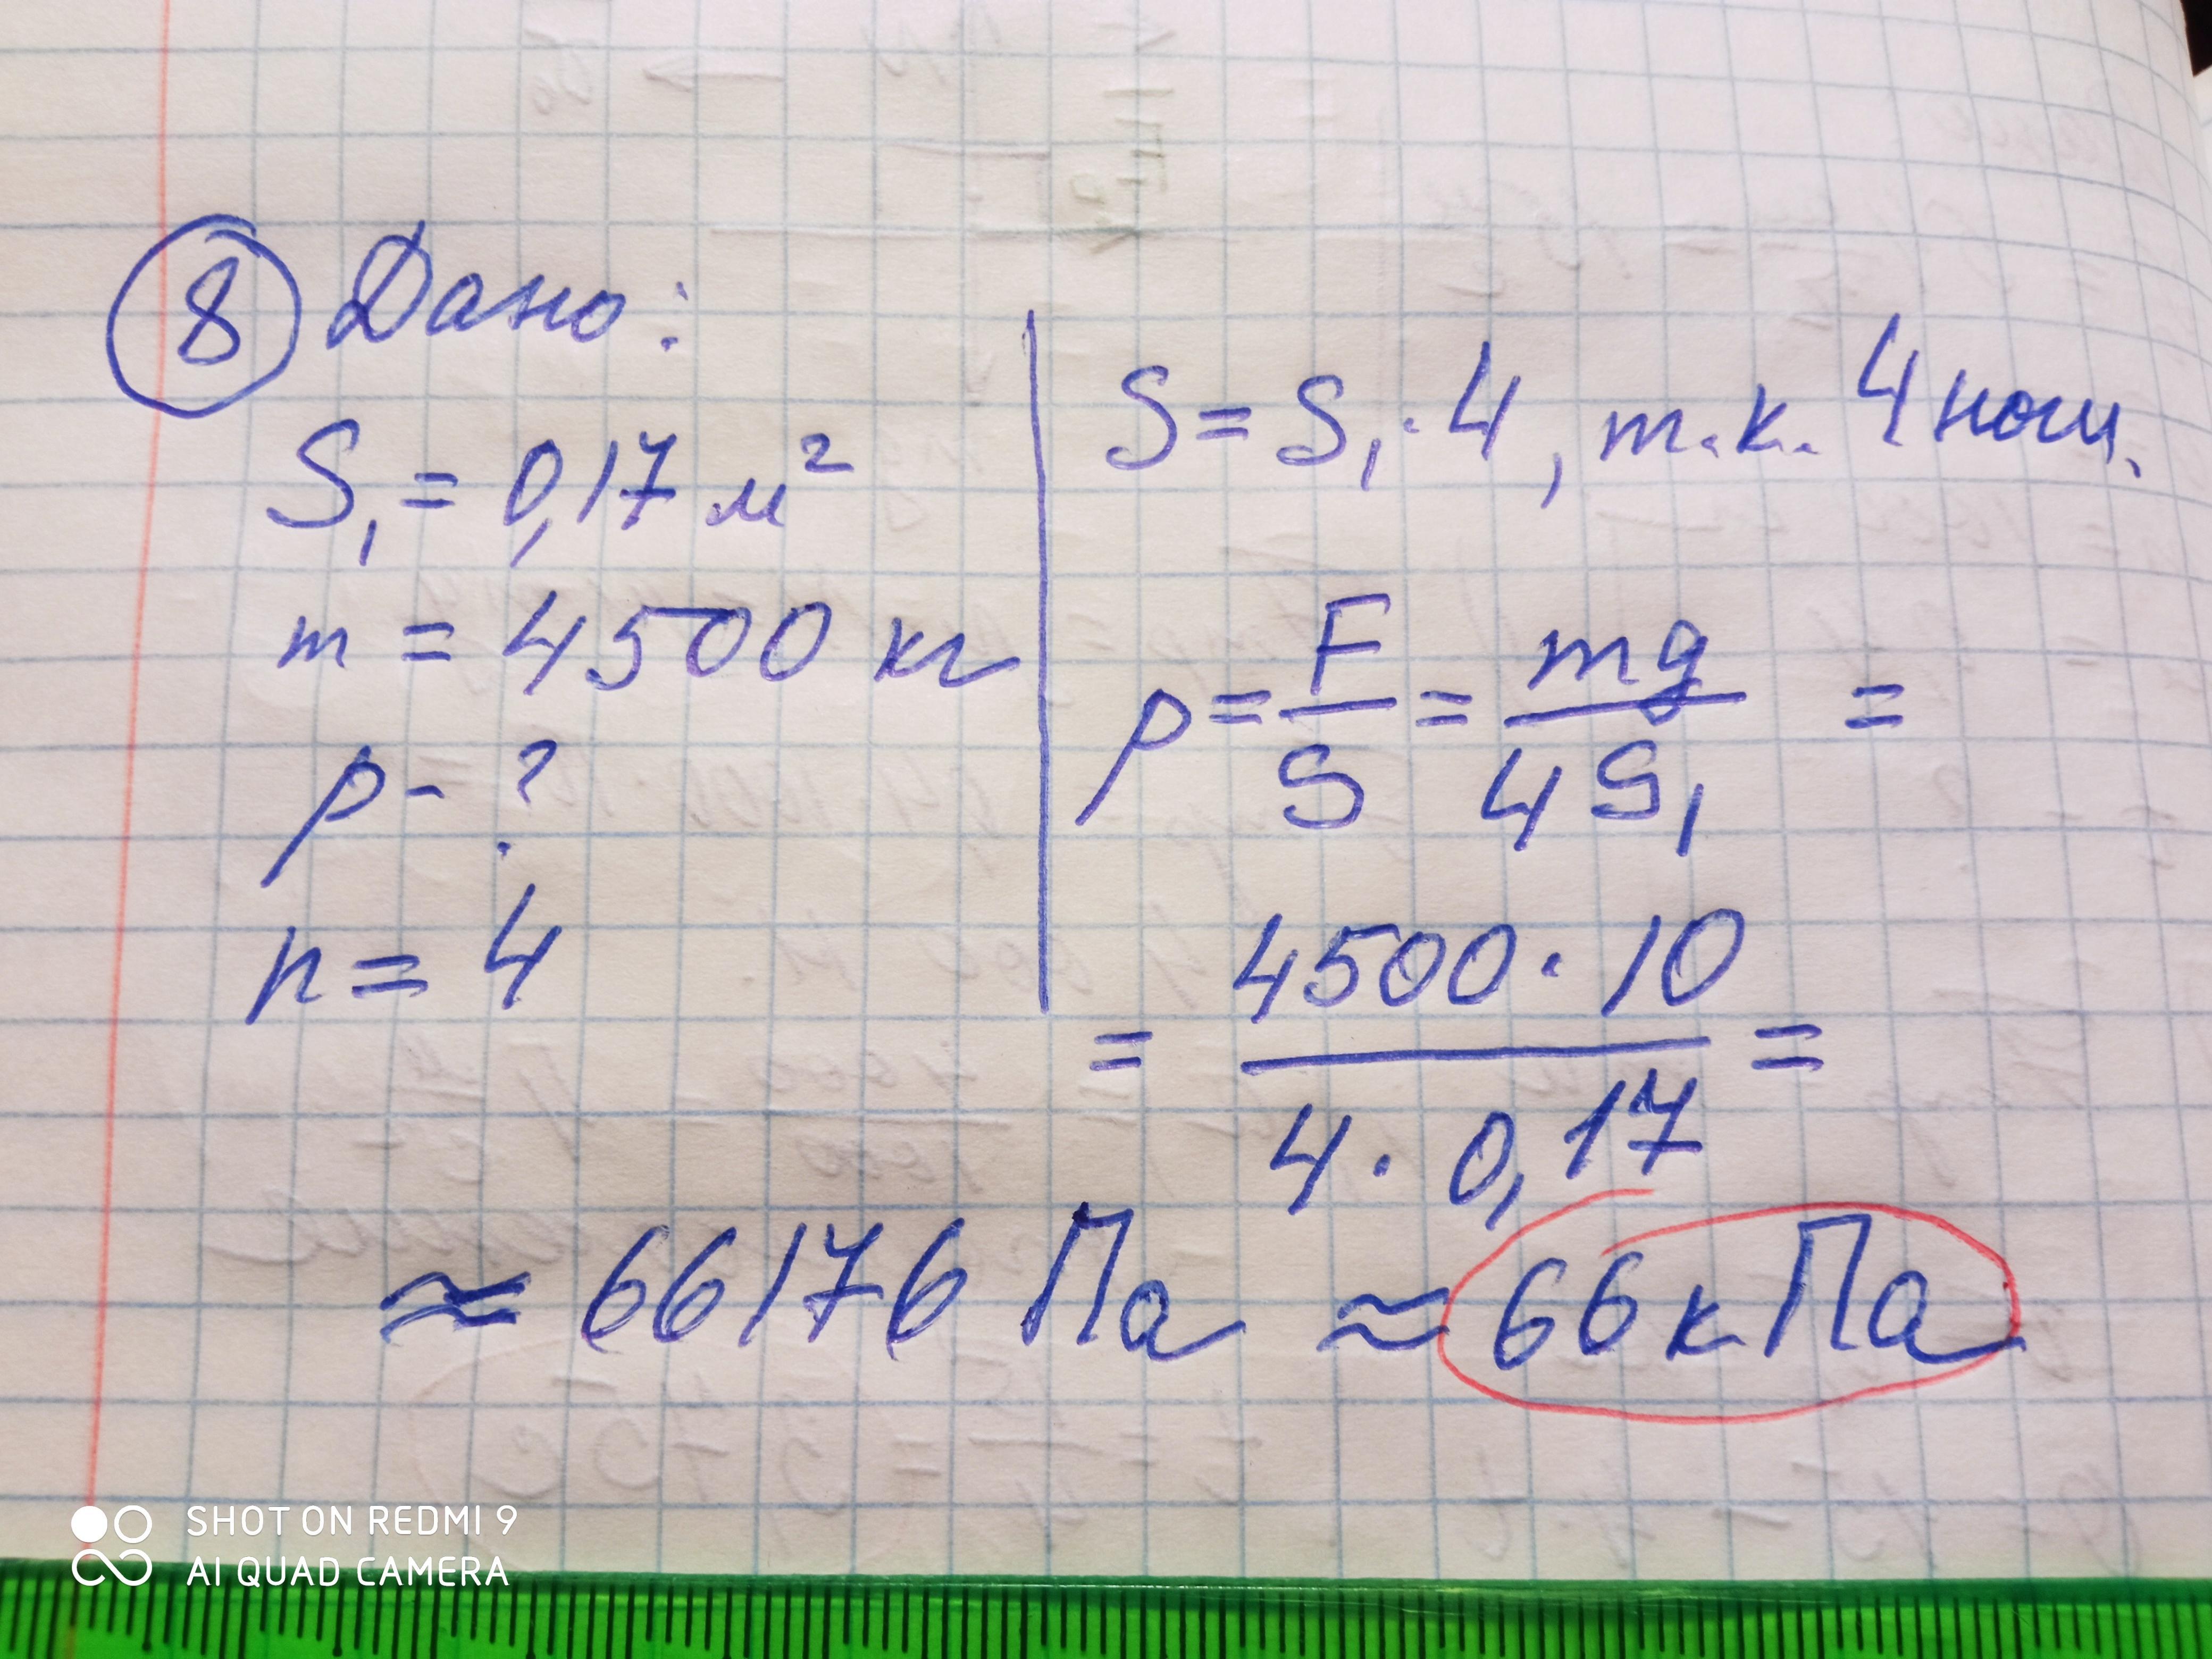 8 Дано:
S₁ = 0,17 м²
m = 4500 кг
p - ?
n = 4
S = S₁ · 4, т.к. 4 ноги.
p = F/S = mg/4S₁ =
= 4500 · 10 / 4 · 0,17 =
≈ 66176 Па ≈ 66 кПа
SHOT ON REDMI 9
AI QUAD CAMERA